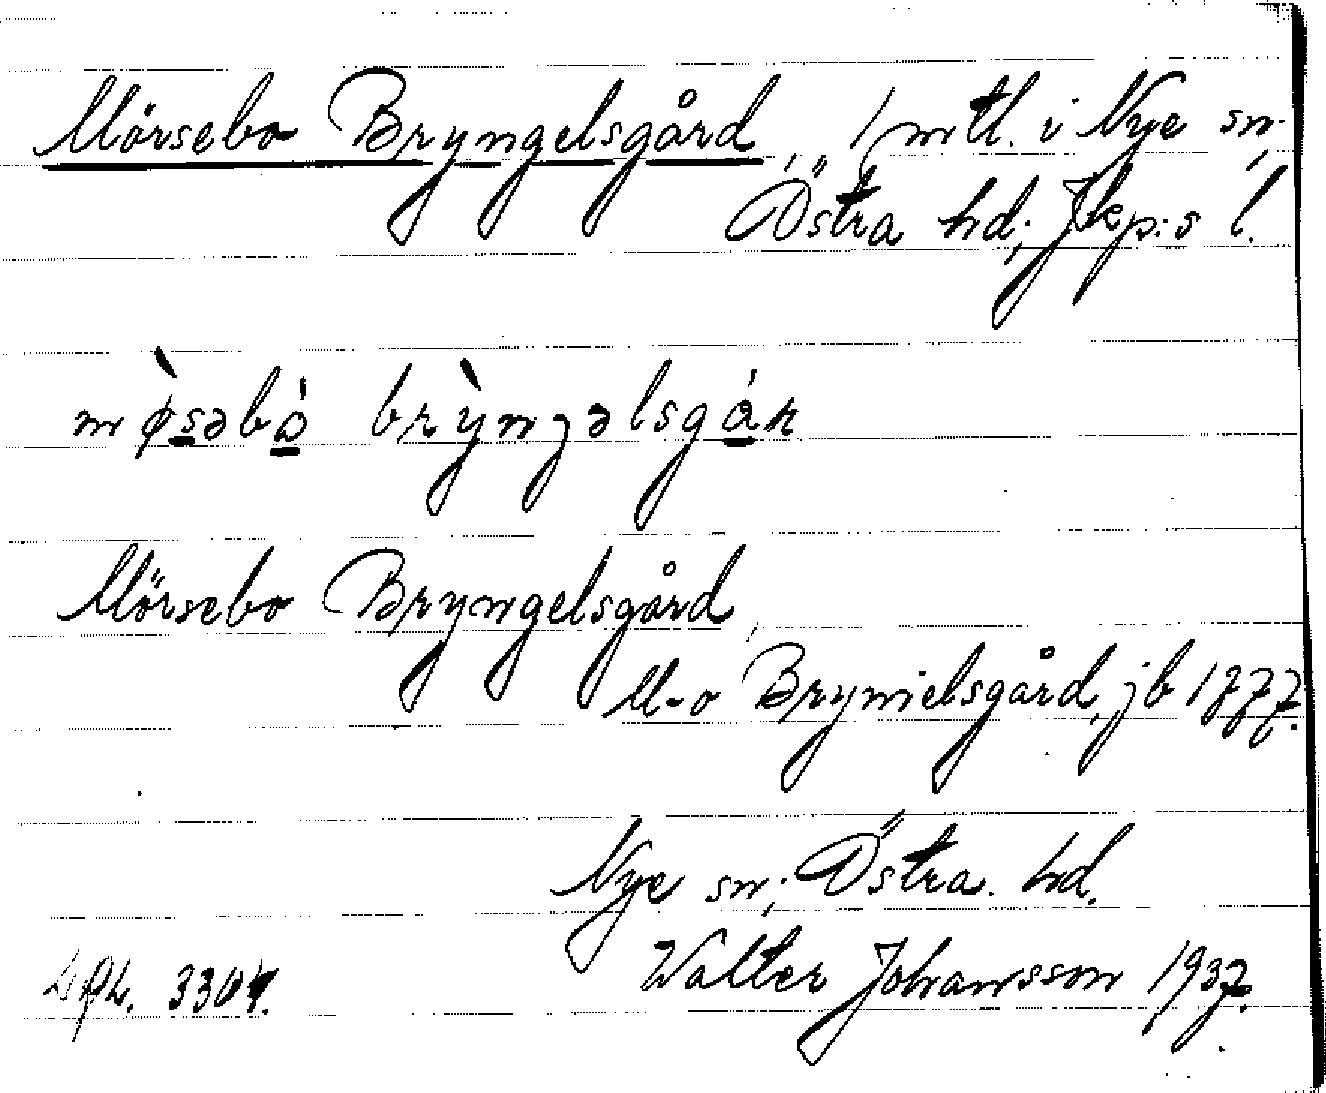 Mörsebo Bryngelsgård, 1 mtl. i Nye sn,
Östra hd; Jkp:s l.
mø̀səbó brỳngəlsgáʀ
Mörsebo Bryngelsgård,
M-o Brynielsgård, jb 1777.
Nye sn; Östra hd.
3304. Walter Johansson 1937.